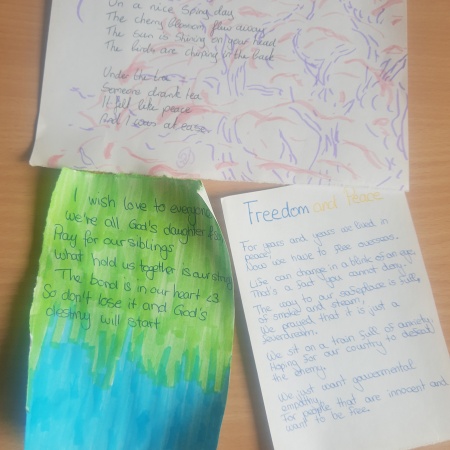 On a nice spring day
The cherry blossom flew away
The sun is shining on your head
The birds are chirping in the back
Under the tree
Someone drank tea
It felt like peace
And I was at ease
I wish love to everyone
we're all God's daughter &
Pray for our siblings
what hold us together is our string
The bond is in our heart <3
So don't lose it and God's
destiny will start
Freedom and Peace
For years and years we lived in
peace,
Now we have to flee overseas.
Life can change in a blink of an eye,
That's a fact you cannot deny.
The way to our safeplace is full
of smoke and steam,
We prayed that it is just a
feverdream.
We sit on a train full of anxiety,
Hoping for our country to defeat
the enemy.
We just want gouvernmental
empathy
For people that are innocent and
want to be free.